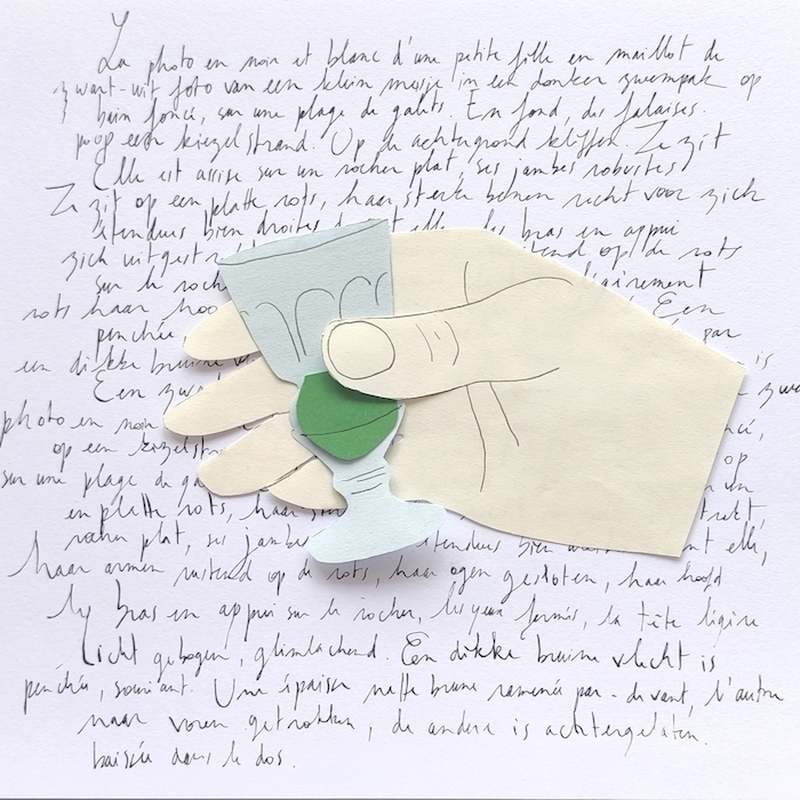 La photo en noir et blanc d'une petite fille en maillot de
zwart-wit foto van een klein meisje in een donker zwempak op
bain foncé, sur une plage de galets. En fond, des falaises.
op een kiezelstrand. Op de achtergrond kliffen. Ze zit
Elle est assise sur un rocher plat, ses jambes robustes
Ze zit op een platte rots, haar sterke benen recht voor zich
étendues bien droites elle, les bras en appui
zich uitgest op de rots
sur le roch légèrement
rots haar hoo Een
penchée, par
een dikke bruine v is
Een zwa zwa
photo en noir cé,
op een kiezelstr op
sur une plage de ga un
en platte rots, haar ste trekt,
rocher plat, ses jambes étendues bien nt elle,
haar armen rustend op de rots, haar ogen gesloten, haar hoofd
les bras en appui sur le rocher, les yeux fermés, la tête légère
licht gebogen, glimlachend. Een dikke bruine vlecht is
penchée, souriant. Une épaisse natte brune ramenée par-devant, l'autre
naar voren getrokken, de andere is achtergelaten.
baissée dans le dos.